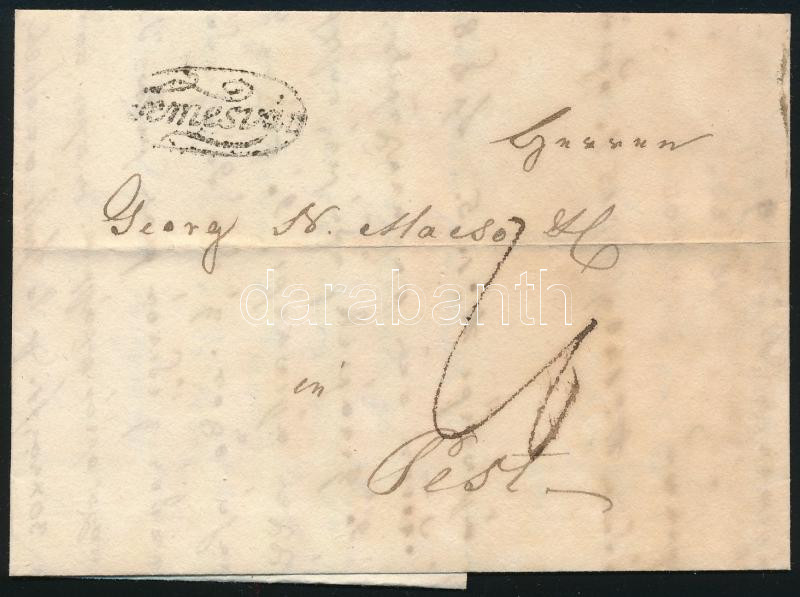 Temesvár
Herren
Georg N. Macso & C
in
Pest
darabanth